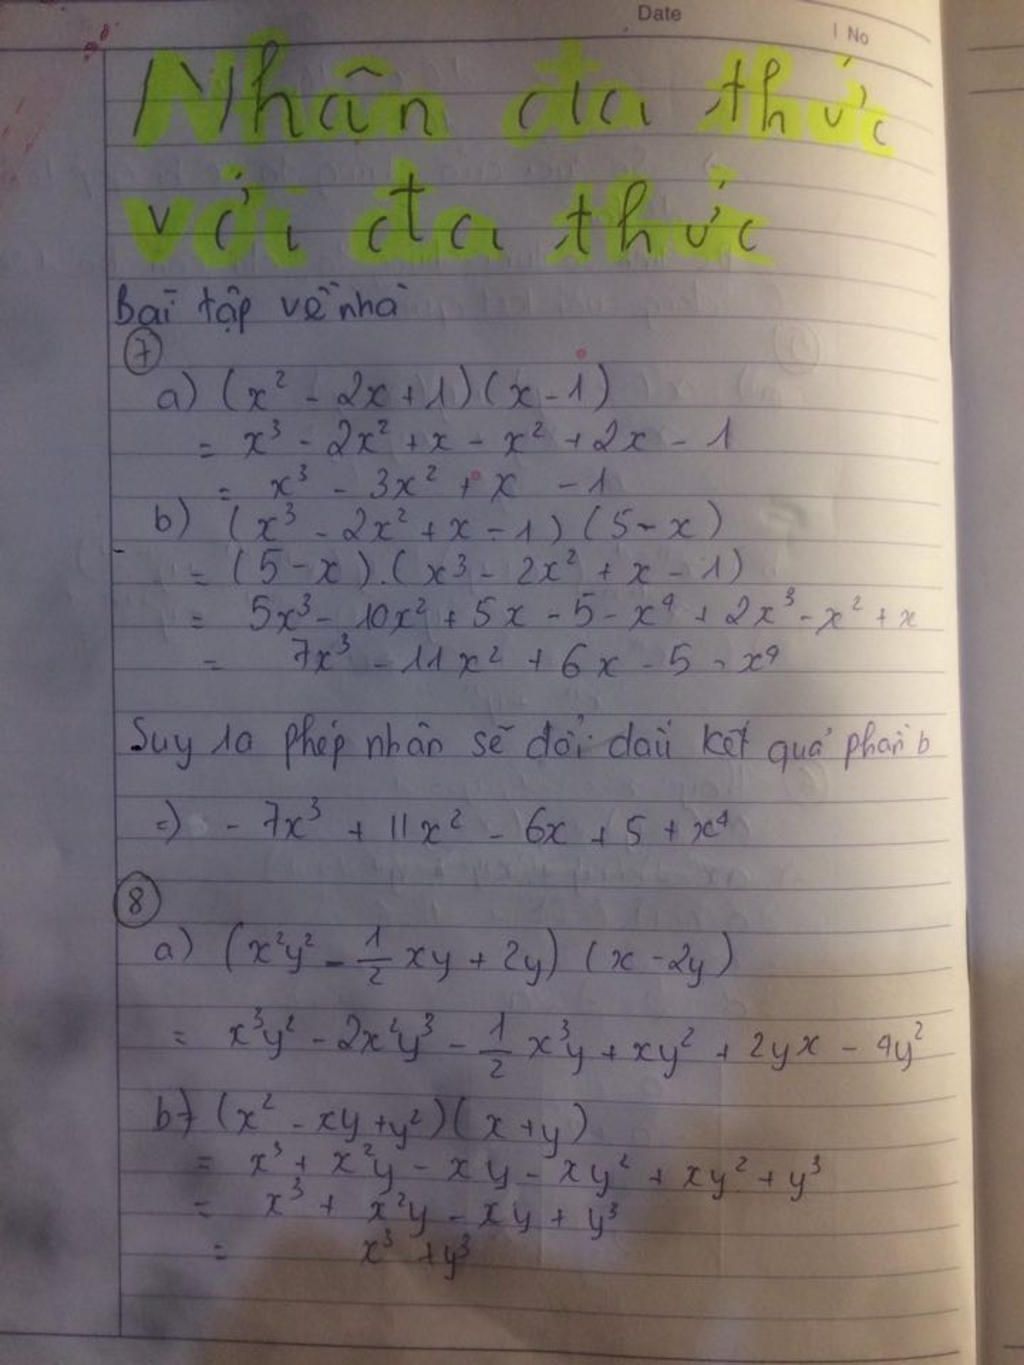 Date
No
Nhân đa thức
với đa thức
Bài tập về nhà
7
a) (x² - 2x + 1)(x - 1)
= x³ - 2x² + x - x² + 2x - 1
= x³ - 3x² + x - 1
b) (x³ - 2x² + x - 1)(5 - x)
= (5 - x).(x³ - 2x² + x - 1)
= 5x³ - 10x² + 5x - 5 - x⁴ + 2x³ - x² + x
= 7x³ - 11x² + 6x - 5 - x⁴
Suy ra phép nhân sẽ đổi dấu kết quả phần b
=) - 7x³ + 11x² - 6x + 5 + x⁴
8
a) (x²y² - 1/2 xy + 2y) (x - 2y)
= x³y² - 2x²y³ - 1/2 x³y + xy² + 2yx - 4y²
b) (x² - xy + y²)(x + y)
= x³ + x²y - xy - xy² + xy² + y³
= x³ + x²y - xy + y³
= x³ + y³